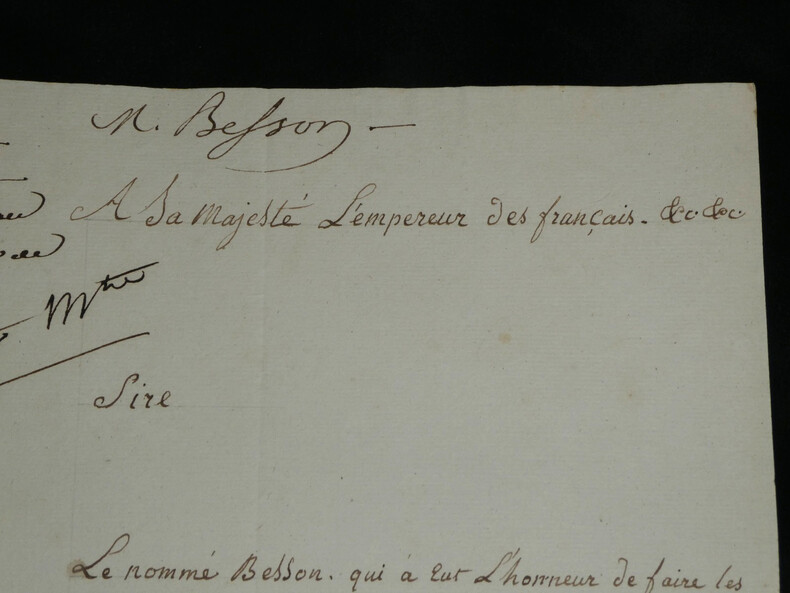 M. Besson
A Sa Majesté L'empereur des français. &c. &c.
Mtre
Sire
Le nommé Besson. qui à eut L'honneur de faire les